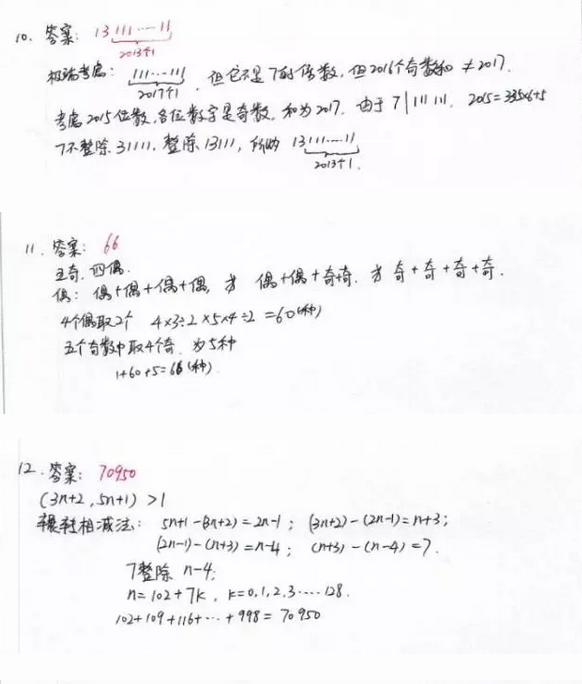 10. 答案: 13111……11
2013个1
极端考虑: 111……111, 但它不是7的倍数, 但2016个奇数和 ≠ 2017.
2017个1
考虑2015位数, 各位数字是奇数, 和为2017. 由于 7 | 111111. 2015=335×6+5
7不整除31111. 整除13111, 所以 13111……11
2013个1.
11. 答案: 66
五奇. 四偶.
偶: 偶+偶+偶+偶, 或 偶+偶+奇+奇. 或 奇+奇+奇+奇.
4个偶取2个 4×3÷2×5×4÷2=60(种)
五个奇数中取4个奇. 为5种
1+60+5=66(种).
12. 答案: 70950
(3n+2, 5n+1) >1
辗转相减法: 5n+1-(3n+2)=2n-1; (3n+2)-(2n-1)=n+3;
(2n-1)-(n+3)=n-4; (n+3)-(n-4)=7.
7整除 n-4;
n=102+7k, k=0,1,2,3……128.
102+109+116+…+998=70950